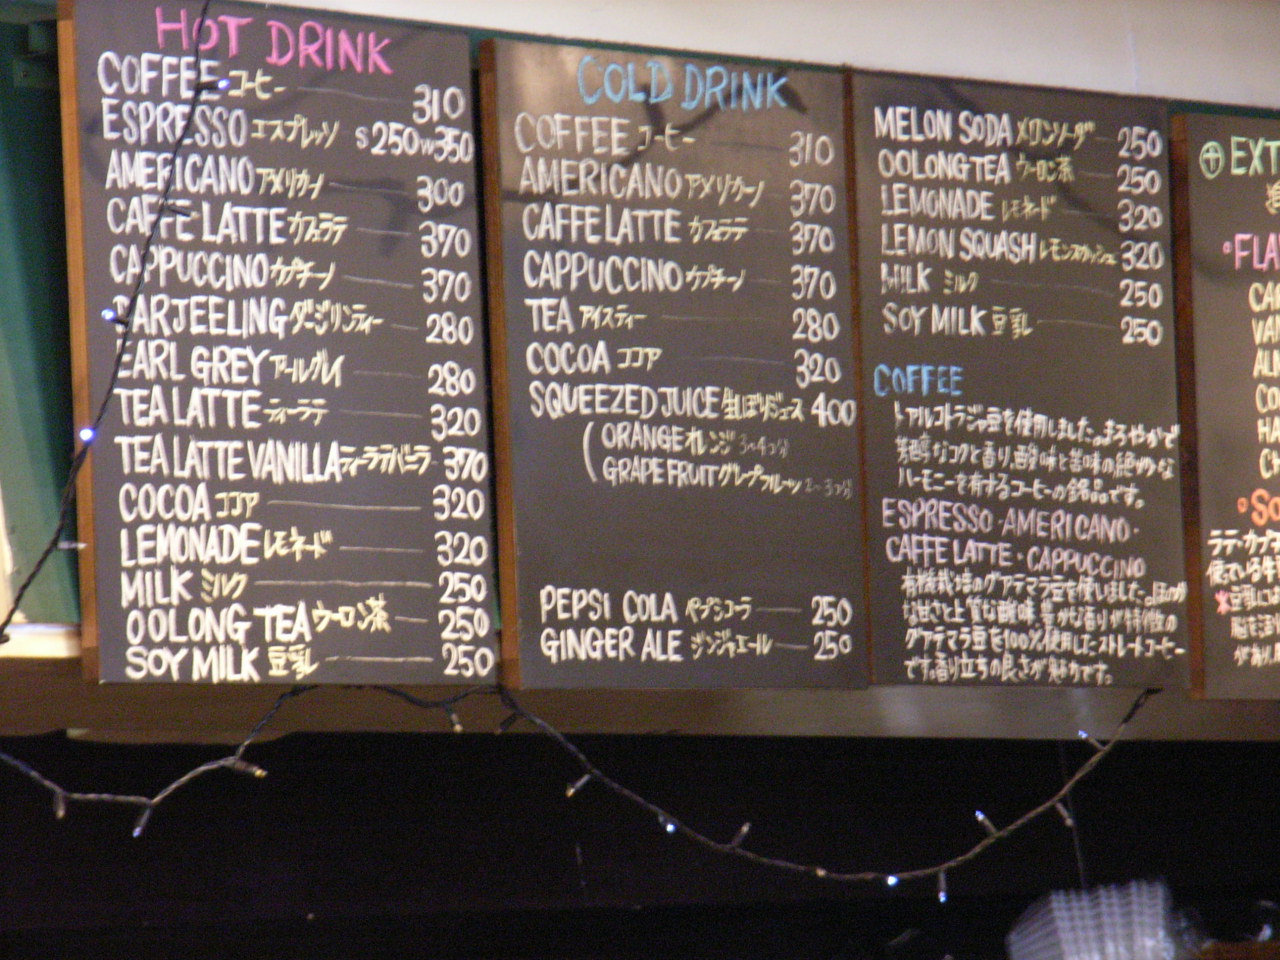 HOT DRINK
COFFEE コーヒー 310
ESPRESSO エスプレッソ S250 W350
AMERICANO アメリカーノ 300
CAFFE LATTE カフェラテ 370
CAPPUCCINO カプチーノ 370
DARJEELING ダージリンティー 280
EARL GREY アールグレイ 280
TEA LATTE ティーラテ 320
TEA LATTE VANILLA ティーラテバニラ 370
COCOA ココア 320
LEMONADE レモネード 320
MILK ミルク 250
OOLONG TEA ウーロン茶 250
SOY MILK 豆乳 250
COLD DRINK
COFFEE コーヒー 310
AMERICANO アメリカーノ 370
CAFFE LATTE カフェラテ 370
CAPPUCCINO カプチーノ 370
TEA アイスティー 280
COCOA ココア 320
SQUEEZED JUICE 生しぼりジュース 400
(ORANGE オレンジ 3~4コ分
GRAPEFRUIT グレープフルーツ 2~3コ分
PEPSI COLA ペプシコーラ 250
GINGER ALE ジンジャエール 250
MELON SODA メロンソーダ 250
OOLONG TEA ウーロン茶 250
LEMONADE レモネード 320
LEMON SQUASH レモンスカッシュ 320
MILK ミルク 250
SOY MILK 豆乳 250
COFFEE
トアルコトラジャ豆を使用しました。まろやかで
芳醇なコクと香り、酸味と苦味の絶妙な
ハーモニーを有するコーヒーの銘品です。
ESPRESSO・AMERICANO・
CAFFE LATTE・CAPPUCCINO
有機栽培のグアテマラ豆を使いました。ほのか
な甘さと上質な酸味、豊かな香りが特徴の
グアテマラ豆を100%使用したストレートコーヒー
です。香り立ちの良さが魅力です。
⊕EXT
・FLA
CA
VAN
AL
CO
HA
C
・SO
ラテ・カプチ
使っている牛
※豆乳に